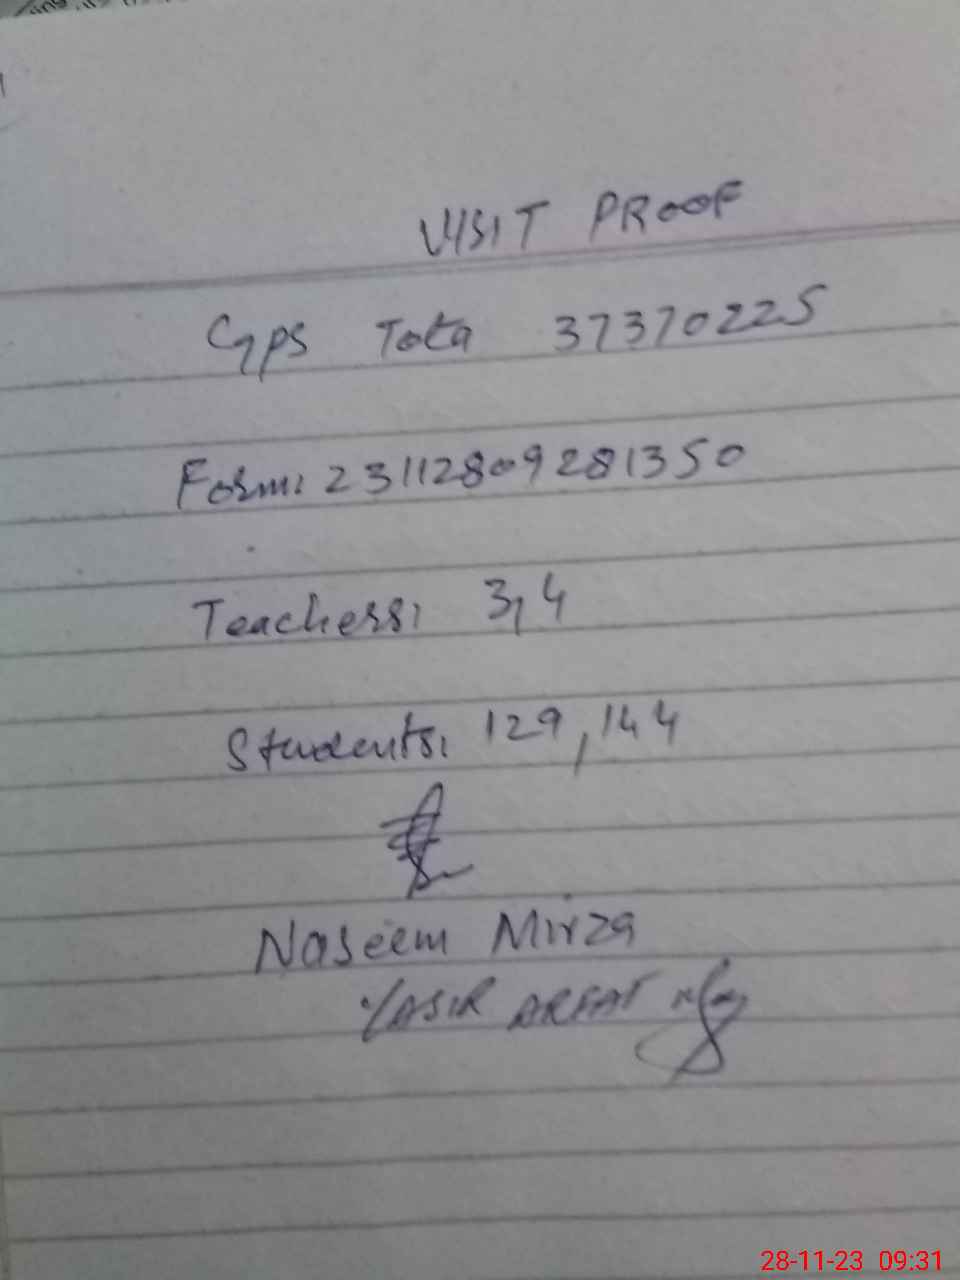 VISIT PROOF
Gps Tota 37370225
Form: 23112809281350
Teachers: 3, 4
Students: 129, 144
Naseem Mirza
YASIR ARFAT
28-11-23 09:31